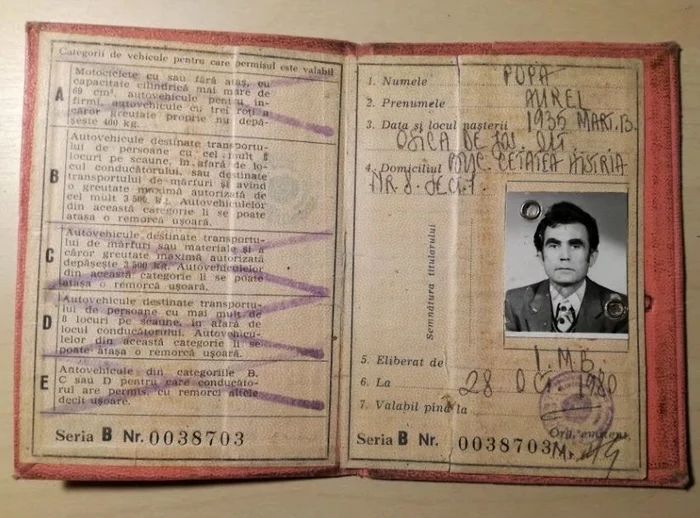 Categorii de vehicule pentru care permisul este valabil
A
Motociclete cu sau fără ataș, cu
capacitate cilindrică mai mare de
69 cm³, autovehicule pentru in-
firmi, autovehicule cu trei roți a
căror greutate proprie nu depă-
șește 400 kg.
B
Autovehicule destinate transportu-
lui de persoane cu cel mult 8
locuri pe scaune, în afară de lo-
cul conducătorului, sau destinate
transportului de mărfuri și avînd
o greutate maximă autorizată de
cel mult 3 500 kg. Autovehiculelor
din această categorie li se poate
atașa o remorcă ușoară.
C
Autovehicule destinate transportu-
lui de mărfuri sau materiale și a
căror greutate maximă autorizată
depășește 3 500 kg. Autovehiculelor
din această categorie li se poate
atașa o remorcă ușoară.
D
Autovehicule destinate transportu-
lui de persoane cu mai mult de
8 locuri pe scaune, în afară de
locul conducătorului. Autovehicu-
lelor din această categorie li se
poate atașa o remorcă ușoară.
E
Autovehicule din categoriile B,
C sau D pentru care conducăto-
rul are permis, cu remorci altele
decît ușoare.
Seria B Nr. 0038703
1. Numele POPA
2. Prenumele AUREL
3. Data și locul nașterii 1935 MART. 13.
OSICA DE JOS. OLT
4. Domiciliul BUC. CETATEA HISTRIA
NR 8. SECT. 7.
Semnătura titularului
5. Eliberat de I.M.B.
6. La 28 1980
7. Valabil pînă la
Org. emitent
Seria B Nr. 0038703